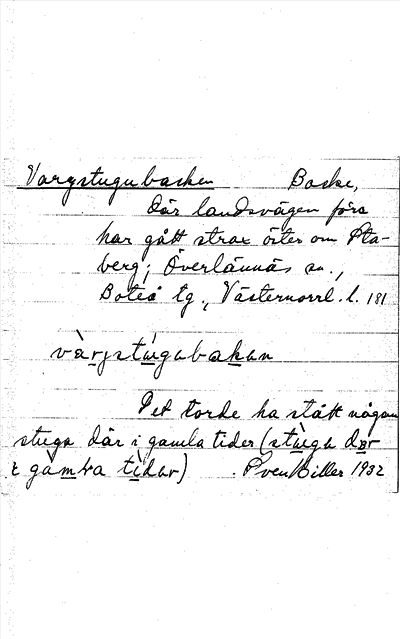 Vargstugubacken Backe,
där landsvägen förr
har gått strax öster om Sta-
berg; Överlännäs sn.,
Boteå tg., Västernorrl. l. 181
vàrgstùgubakan
Det torde ha stått någon
stuga där i gamla tider (stùga dær
i gàmɫa tìdar) . Sven Hiller 1932